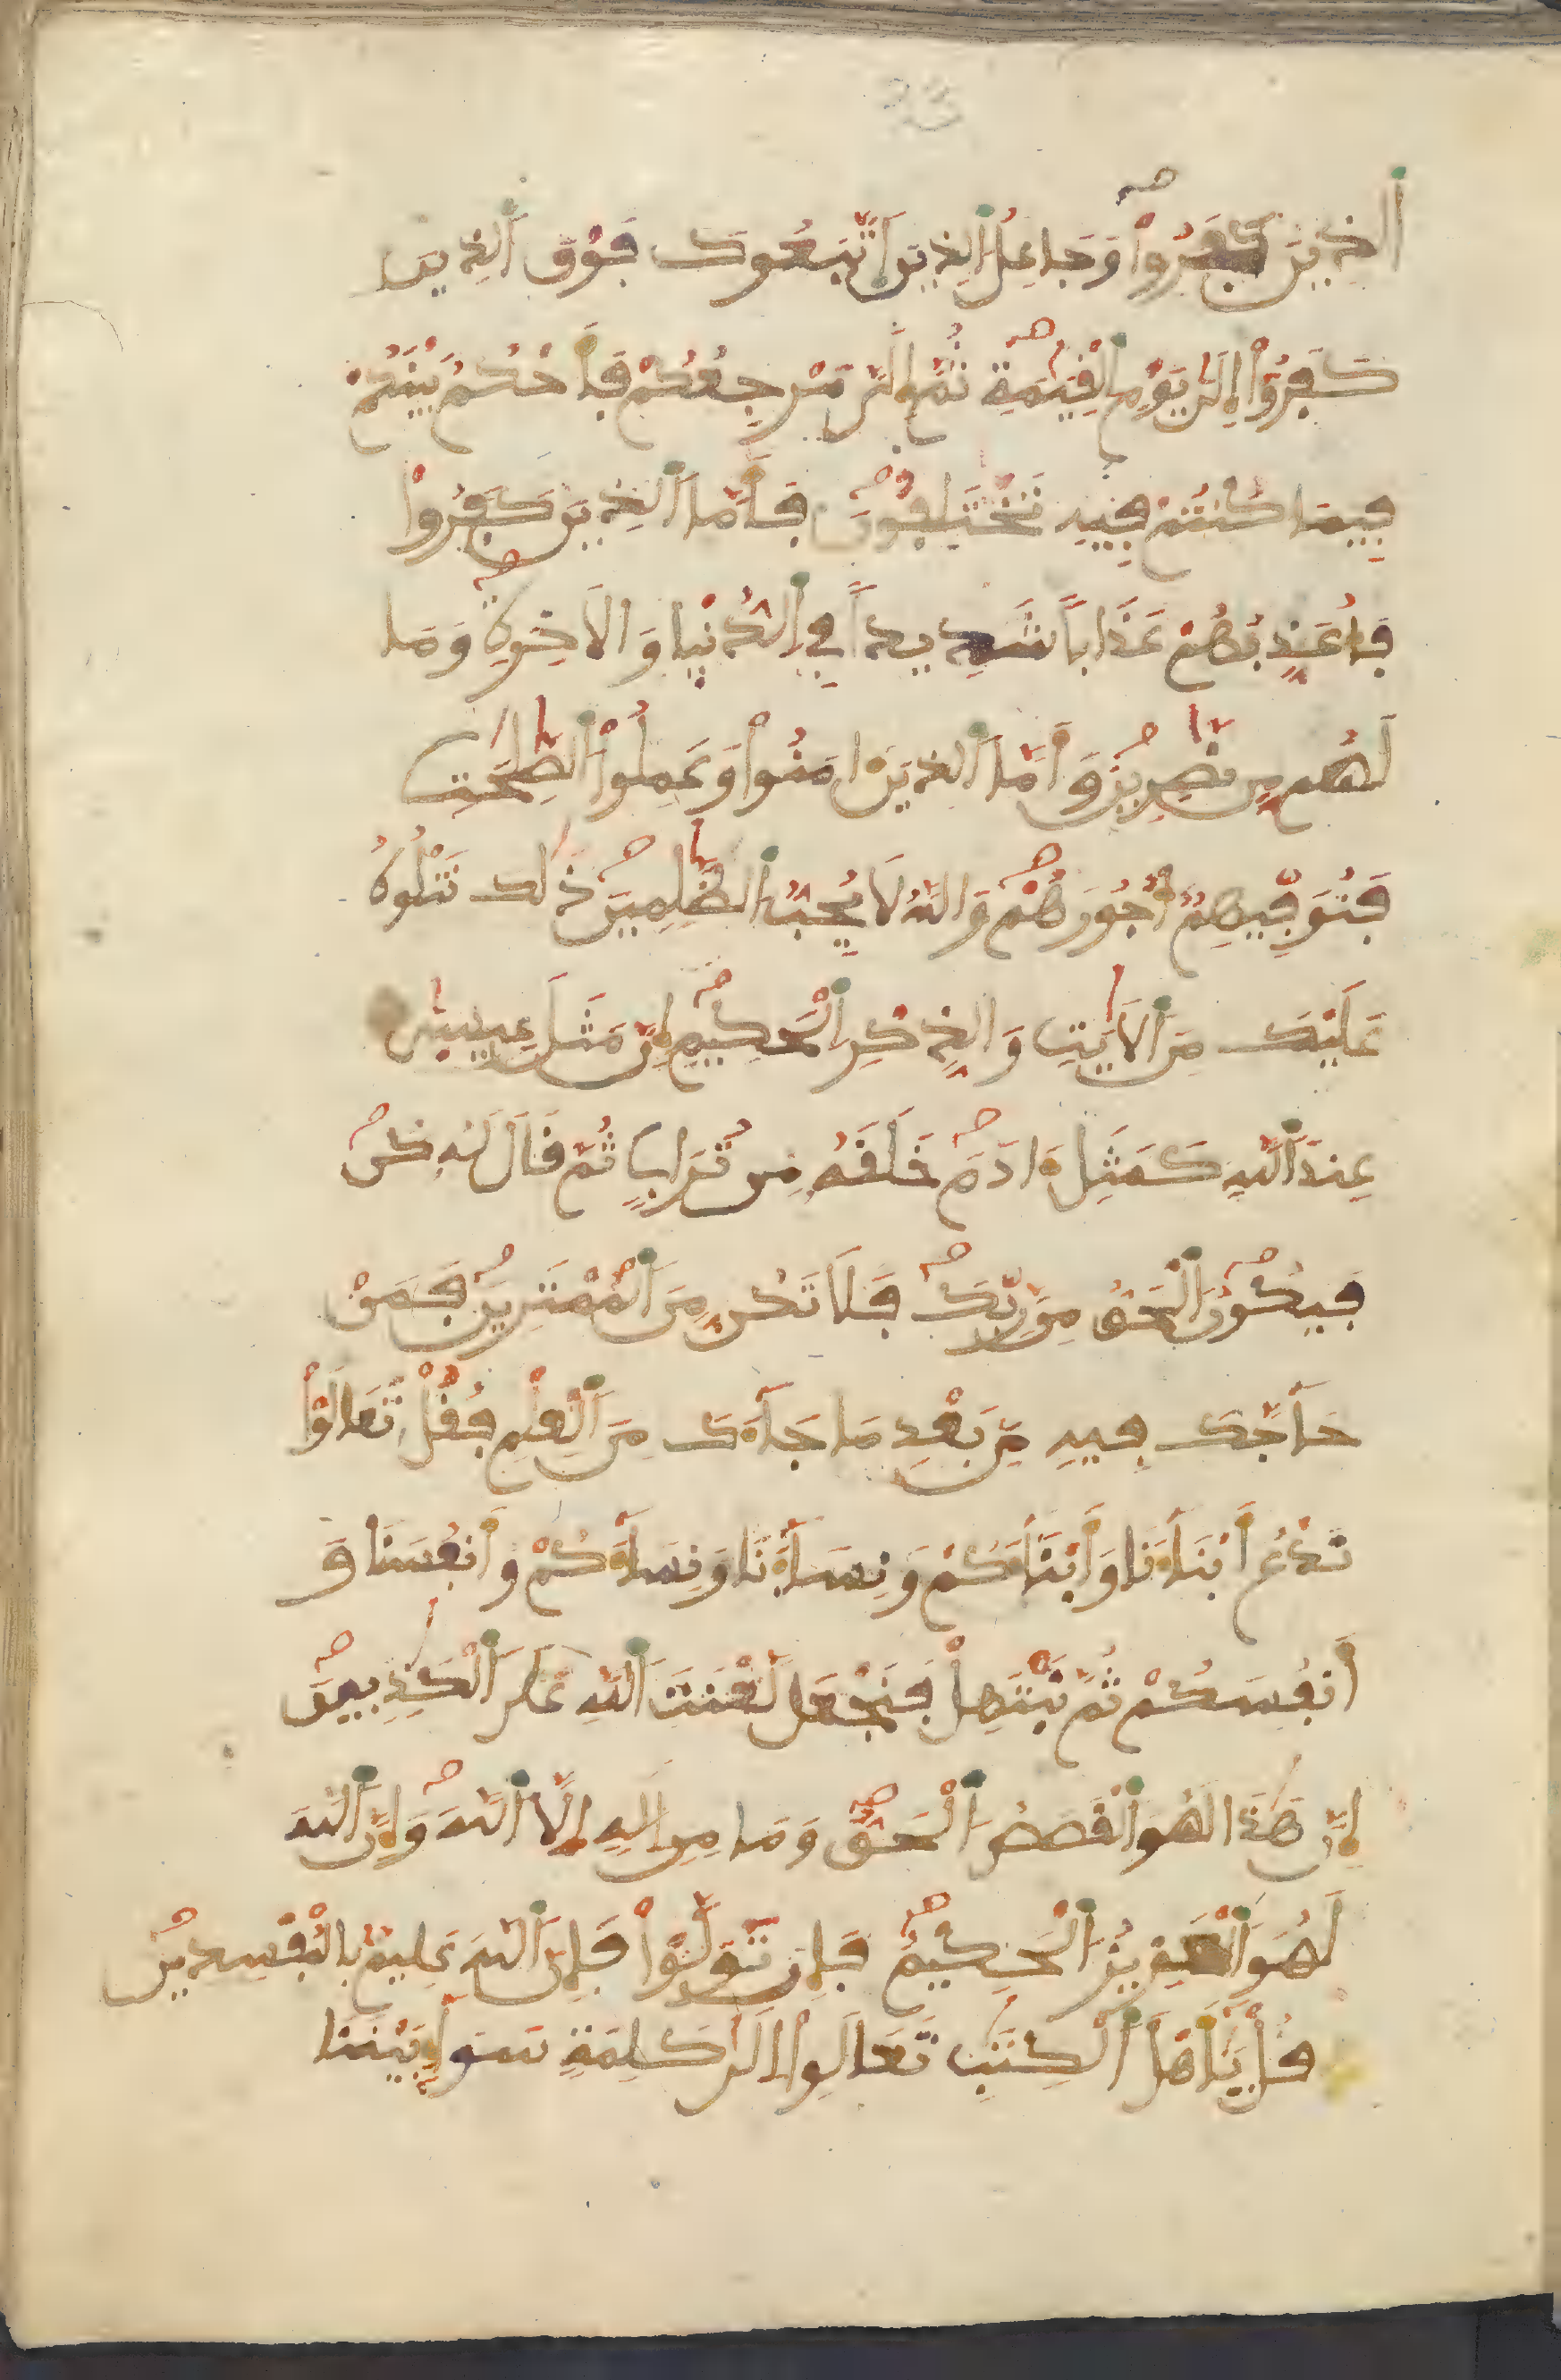 23
اَ۬لذِينَ كَفَرُواْ وَجَاعِلُ اُ۬لذِينَ اَ۪تَّبَعُوكَ فَوْقَ اَ۬لذِينَ
كَفَرُوٓاْ إِلَىٰ يَوْمِ اِ۬لْقِيَٰمَةِ ثُمَّ إِلَيَّ مَرْجِعُكُمْ فَأَحْكُمُ بَيْنَكُمْ
فِيمَا كُنتُمْ فِيهِ تَخْتَلِفُونَ فَأَمَّا اَ۬لذِينَ كَفَرُواْ
فَأُعَذِّبُهُمْ عَذَاباً شَدِيداً فِي اِ۬لدُّنْيَا وَالَاخِرَةِ وَمَا
لَهُم مِّن نَّٰصِرِينَ وَأَمَّا اَ۬لذِينَ ءَامَنُواْ وَعَمِلُواْ اُ۬لصَّٰلِحَٰتِ
فَنُوَفِّيهِمُۥٓ أُجُورَهُمْ وَاللَّهُ لَا يُحِبُّ اُ۬لظَّٰلِمِينَ ذَٰلِكَ نَتْلُوهُ
عَلَيْكَ مِنَ اَ۬لَايَٰتِ وَالذِّكْرِ اِ۬لْحَكِيمِ إِنَّ مَثَلَ عِيسَىٰ
عِندَ اَ۬للَّهِ كَمَثَلِ ءَادَمَ خَلَقَهُۥ مِن تُرَابٍ ثُمَّ قَالَ لَهُۥ كُن
فَيَكُونُ اُ۬لْحَقُّ مِن رَّبِّكَ فَلَا تَكُن مِّنَ اَ۬لْمُمْتَرِينَ فَمَنْ
حَآجَّكَ فِيهِ مِنۢ بَعْدِ مَا جَآءَكَ مِنَ اَ۬لْعِلْمِ فَقُلْ تَعَالَوْاْ
نَدْعُ أَبْنَآءَنَا وَأَبْنَآءَكُمْ وَنِسَآءَنَا وَنِسَآءَكُمْ وَأَنفُسَنَا وَ
أَنفُسَكُمْ ثُمَّ نَبْتَهِلْ فَنَجْعَل لَّعْنَتَ اَ۬للَّهِ عَلَى اَ۬لْكَٰذِبِينَ
إِنَّ هَٰذَا لَهُوَ اَ۬لْقَصَصُ اُ۬لْحَقُّ وَمَا مِنِ اِلَٰهٍ إِلَّا اَ۬للَّهُ وَإِنَّ اَ۬للَّهَ
لَهُوَ اَ۬لْعَزِيزُ اُ۬لْحَكِيمُ فَإِن تَوَلَّوْاْ فَإِنَّ اَ۬للَّهَ عَلِيمٌ بِالْمُفْسِدِينَ
قُلْ يَٰٓأَهْلَ اَ۬لْكِتَٰبِ تَعَالَوِاْ اِلَىٰ كَلِمَةٍ سَوَآءٍ بَيْنَنَا